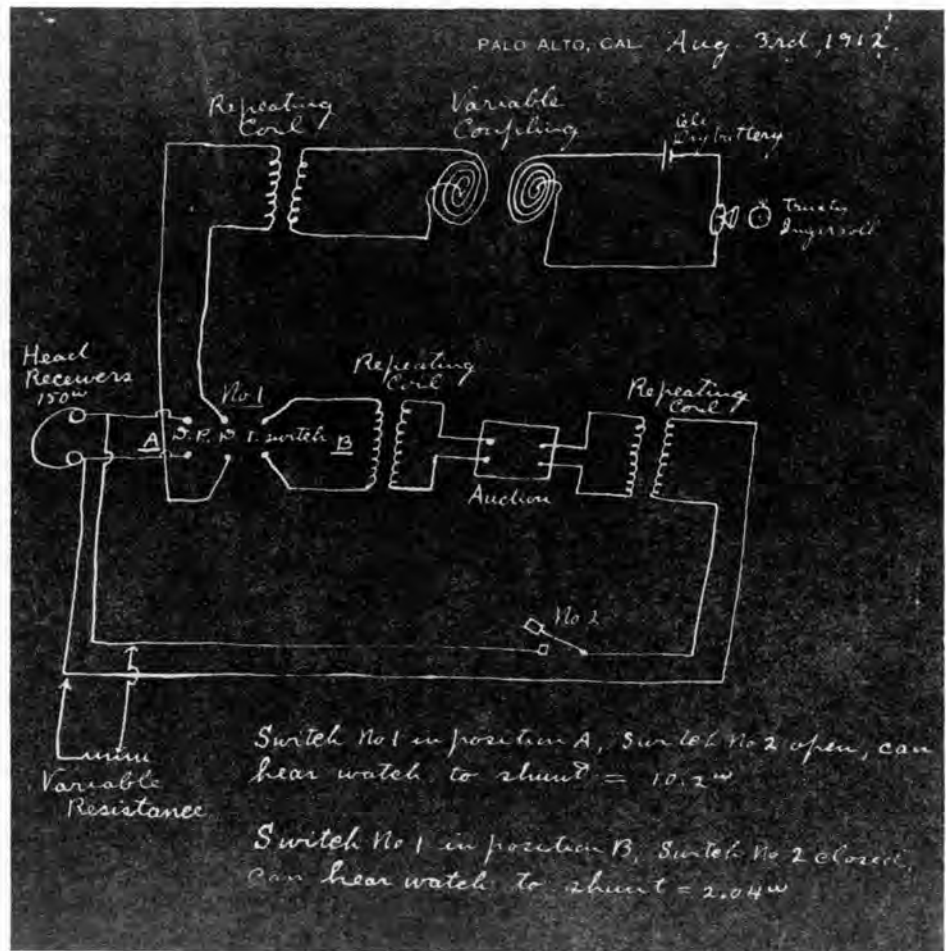 PALO ALTO, CAL. Aug. 3rd, 1912.
Repeating
Coil
Variable
Coupling
Dry battery
Trusty
Ingersoll
Head
Receivers
150ω
No 1
A D. P. D. T. switch B
Repeating
Coil
Repeating
Coil
Auction
No 2
Variable
Resistance
Switch No 1 in position A, Switch No 2 open, can
hear watch to shunt = 10.2ω
Switch No 1 in position B, Switch No 2 closed,
can hear watch to shunt = 2.04ω